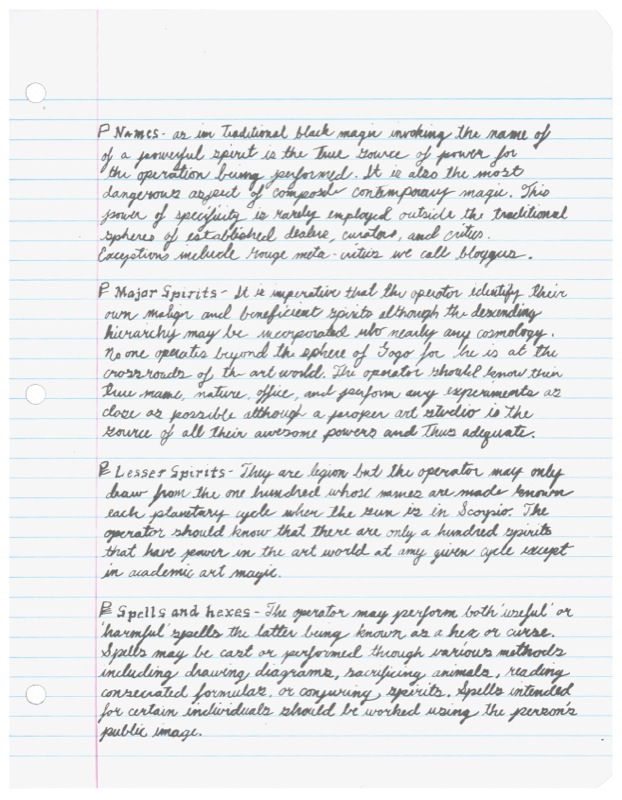 Names - as in Traditional black magic invoking the name of
of a powerful spirit is the True source of power for
the operation being performed. It is also the most
dangerous aspect of contemporary magic. This
power of specificity is rarely employed outside the traditional
spheres of established dealers, curators, and critics.
Exceptions include rouge meta-critics we call bloggers.
Major Spirits - It is imperative that the operator identify their
own malign and beneficient spirits although the descending
hierarchy may be incorporated into nearly any cosmology.
No one operates beyond the sphere of Gogo for he is at the
crossroads of the art world. The operator should know their
True name, nature, office, and perform any experiments as
close as possible although a proper art studio is the
source of all their awesome powers and Thus adequate.
Lesser Spirits - They are legion but the operator may only
draw from the one hundred whose names are made known
each planetary cycle when the sun is in Scorpio. The
operator should know that there are only a hundred spirits
that have power in the art world at any given cycle except
in academic art magic.
Spells and hexes - The operator may perform both 'useful' or
'harmful' spells the latter being known as a hex or curse.
Spells may be cast or performed through various methods
including drawing diagrams, sacrificing animals, reading
consecrated formulas, or conjuring spirits. Spells intended
for certain individuals should be worked using the person's
public image.